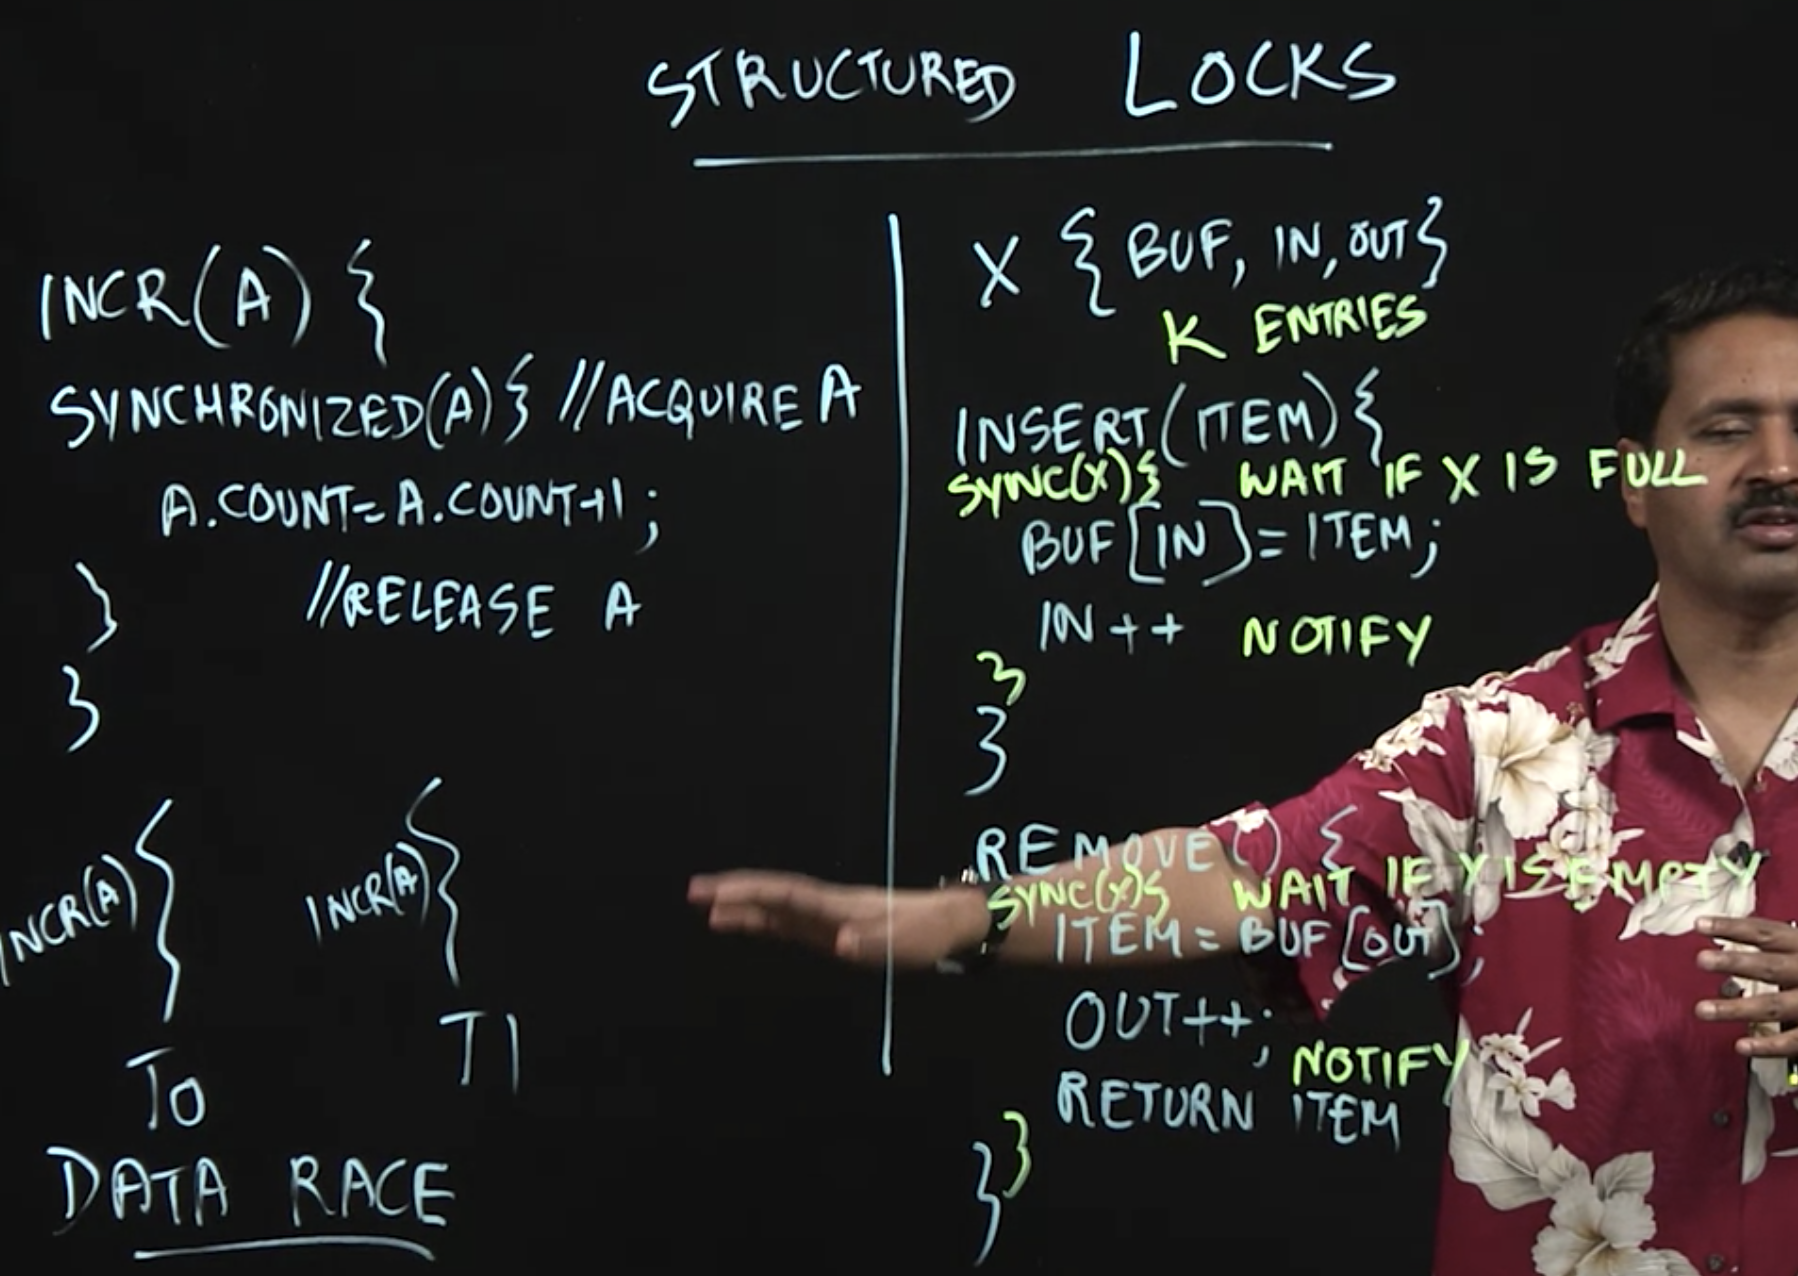 STRUCTURED LOCKS
INCR(A) {
SYNCHRONIZED(A) { //ACQUIRE A
A.COUNT=A.COUNT+1;
} //RELEASE A
}
INCR(A) {
T0
INCR(A) {
T1
DATA RACE
X { BUF, IN, OUT }
K ENTRIES
INSERT(ITEM) {
SYNC(X) { WAIT IF X IS FULL
BUF[IN] = ITEM;
IN++ NOTIFY
}
}
REMOVE() {
SYNC(X) { WAIT IF X IS EMPTY
ITEM = BUF[OUT];
OUT++;
NOTIFY
RETURN ITEM
} }